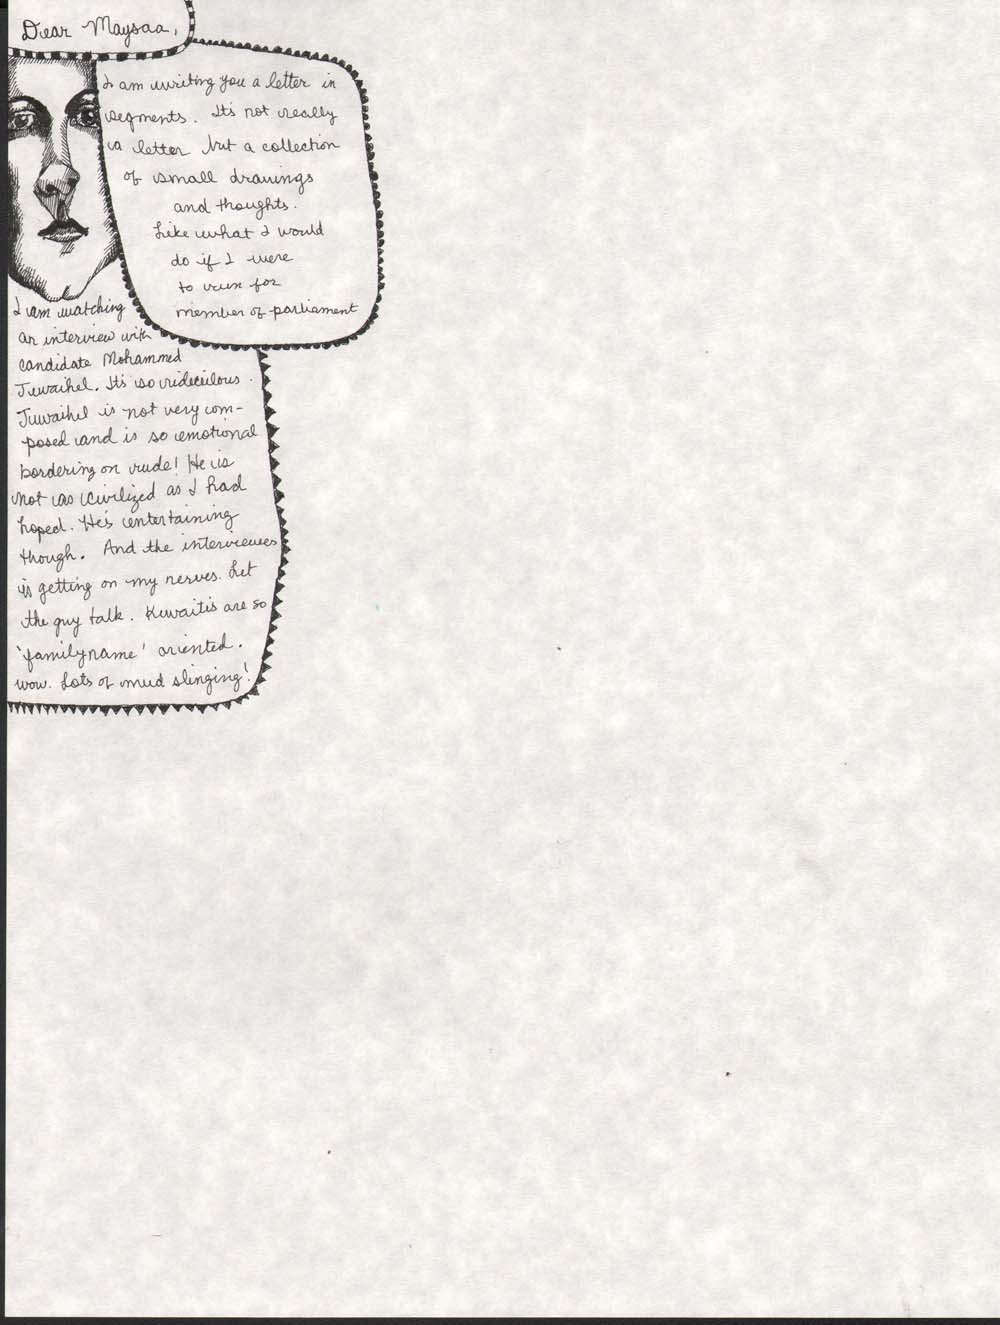 Dear Maysaa,
I am writing you a letter in
segments. It's not really
a letter but a collection
of small drawings
and thoughts.
Like what I would
do if I were
to run for
member of parliament
I am watching
an interview with
candidate Mohammed
Juwaihel. It's so ridiculous.
Juwaihel is not very com-
posed and is so emotional
bordering on rude! He is
not as civilized as I had
hoped. He's entertaining
though. And the interviewer
is getting on my nerves. Let
the guy talk. Kuwaitis are so
'family name' oriented.
wow. Lots of mud slinging!